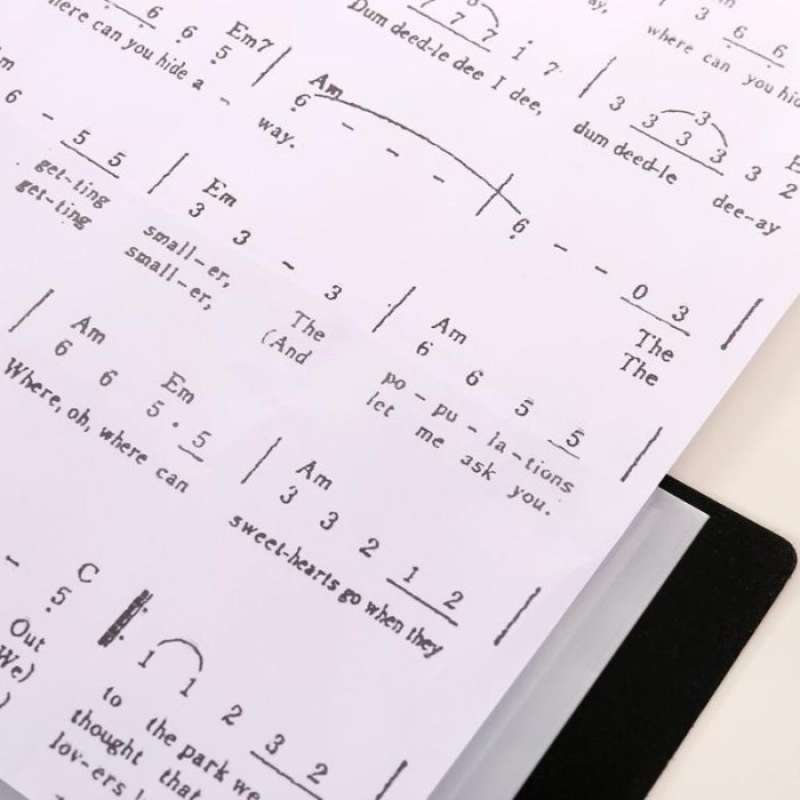 3 6 6
where can you
3
7 7 7 1 7 | 3 3 3 3 3 2
Dum deed-le dee I dee, dum deed-le dee-ay
Em7 Am
6 6 5 | 6 - - - | 6 - - 0 3 |
can you hide a - way. The
The
Em Am
6 - 5 5 | 3 3 - 3 | 6 6 5 5 |
get-ting small-er, The po-pu-la-tions
get-ting small-er, (And let me ask you.
Am Em Am
| 6 6 5 . 5 | 3 3 2 1 2 |
Where, oh, where can sweet-hearts go when they
C
- 5 |: 1 1 2 3 2 |
Out to the park we
We) thought that
lov-ers